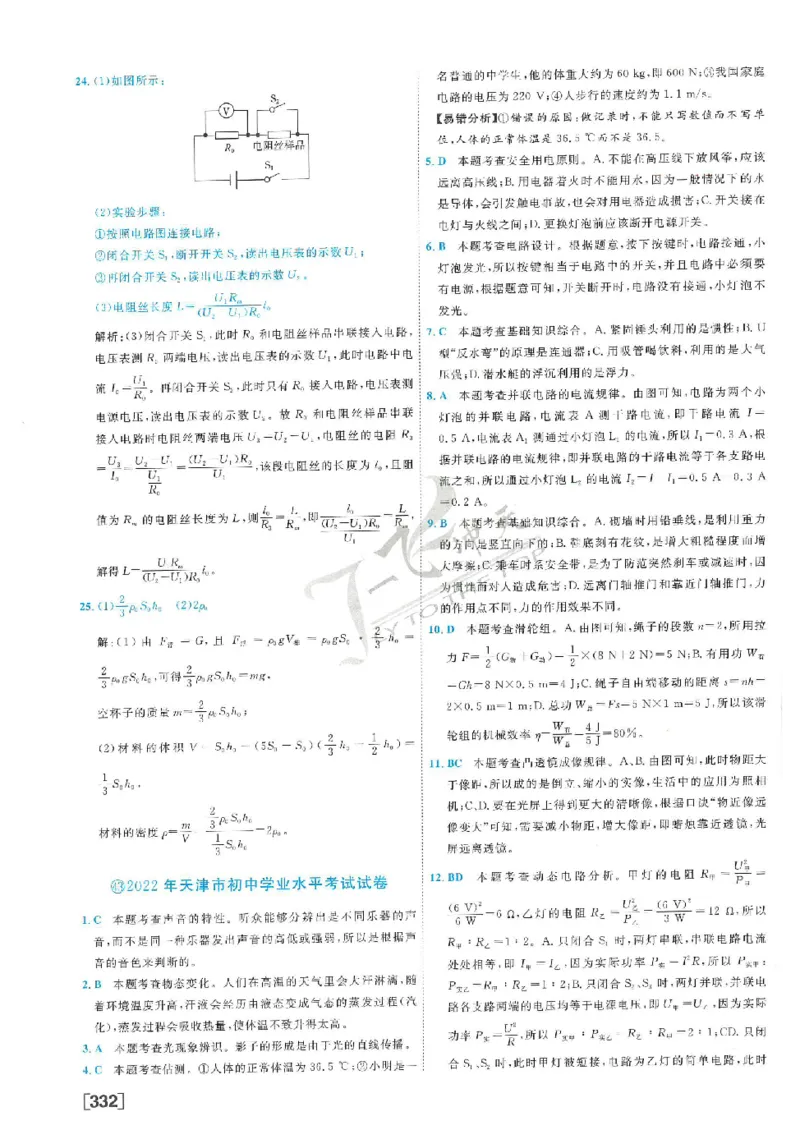 24. (1)如图所示:
V
S₂
R₀
电阻丝样品
S₁
(2)实验步骤:
①按照电路图连接电路;
②闭合开关 S₁,断开开关 S₂,读出电压表的示数 U₁;
③再闭合开关 S₂,读出电压表的示数 U₂。
(3)电阻丝长度 L=U₁Rₘ/((U₂-U₁)R₀) l₀
解析:(3)闭合开关 S₁,此时 R₀ 和电阻丝样品串联接入电路,
电压表测 R₀ 两端电压,读出电压表的示数 U₁,此时电路中电
流 I₀=U₁/R₀。再闭合开关 S₂,此时只有 R₀ 接入电路,电压表测
电源电压,读出电压表的示数 U₂。故 R₀ 和电阻丝样品串联
接入电路时电阻丝两端电压 U₃=U₂-U₁,电阻丝的电阻 R₃
=U₃/I₀=(U₂-U₁)/(U₁/R₀)=(U₂-U₁)R₀/U₁,该段电阻丝的长度为 l₀,且阻
值为 Rₘ 的电阻丝长度为 L,则 l₀/R₃=L/Rₘ,即 l₀/((U₂-U₁)R₀/U₁)=L/Rₘ,
解得 L=U₁Rₘ/((U₂-U₁)R₀) l₀。
25. (1)2/3 ρ₀S₀h₀ (2)2ρ₀
解:(1)由 F浮=G,且 F浮=ρ₀gV排=ρ₀gS₀·2/3 h₀=
2/3 ρ₀gS₀h₀,可得 2/3 ρ₀gS₀h₀=mg,
空杯子的质量 m=2/3 ρ₀S₀h₀;
(2)材料的体积 V=S₀h₀-(5S₀-S₀)(2/3 h₀-1/2 h₀)=
1/3 S₀h₀,
材料的密度 ρ=m/V=(2/3 ρ₀S₀h₀)/(1/3 S₀h₀)=2ρ₀。
㊸2022 年天津市初中学业水平考试试卷
1. C 本题考查声音的特性。听众能够分辨出是不同乐器的声
音,而不是同一种乐器发出声音的高低或强弱,所以是根据声
音的音色来判断的。
2. B 本题考查物态变化。人们在高温的天气里会大汗淋漓,随
着环境温度升高,汗液会经历由液态变成气态的蒸发过程(汽
化),蒸发过程会吸收热量,使体温不致升得太高。
3. A 本题考查光现象辨识。影子的形成是由于光的直线传播。
4. C 本题考查估测。①人体的正常体温为 36.5 ℃;②小明是一
[332]
名普通的中学生,他的体重大约为 60 kg,即 600 N;③我国家庭
电路的电压为 220 V;④人步行的速度约为 1.1 m/s。
【易错分析】①错误的原因:做记录时,不能只写数值而不写单
位,人体的正常体温是 36.5 ℃而不是 36.5。
5. D 本题考查安全用电原则。A. 不能在高压线下放风筝,应该
远离高压线;B. 用电器着火时不能用水,因为一般情况下的水
是导体,会引发触电事故,也会对用电器造成损害;C. 开关接在
电灯与火线之间;D. 更换灯泡前应该断开电源开关。
6. B 本题考查电路设计。根据题意,按下按键时,电路接通,小
灯泡发光,所以按键相当于电路中的开关,并且电路中必须要
有电源,根据题意可知,开关断开时,电路没有接通,小灯泡不
发光。
7. C 本题考查基础知识综合。A. 紧固锤头利用的是惯性;B. U
型“反水弯”的原理是连通器;C. 用吸管喝饮料,利用的是大气
压强;D. 潜水艇的浮沉利用的是浮力。
8. A 本题考查并联电路的电流规律。由图可知,电路为两个小
灯泡的并联电路,电流表 A 测干路电流,即干路电流 I=
0.5 A,电流表 A₁ 测通过小灯泡 L₁ 的电流,所以 I₁=0.3 A,根
据并联电路的电流规律,即并联电路的干路电流等于各支路电
流之和,所以通过小灯泡 L₂ 的电流 I₂=I-I₁=0.5 A-0.3 A
=0.2 A。
9. B 本题考查基础知识综合。A. 砌墙时用铅垂线,是利用重力
的方向是竖直向下的;B. 鞋底刻有花纹,是增大粗糙程度而增
大摩擦;C. 乘车时系安全带,是为了防范突然刹车或减速时,因
为惯性而对人造成危害;D. 远离门轴推门和靠近门轴推门,力
的作用点不同,力的作用效果不同。
10. D 本题考查滑轮组。A. 由图可知,绳子的段数 n=2,所用拉
力 F=1/2(G物+G动)=1/2×(8 N+2 N)=5 N;B. 有用功 W有
=Gh=8 N×0.5 m=4 J;C. 绳子自由端移动的距离 s=nh=
2×0.5 m=1 m;D. 总功 W总=Fs=5 N×1 m=5 J,所以该滑
轮组的机械效率 η=W有/W总=4 J/5 J=80%。
11. BC 本题考查凸透镜成像规律。A、B. 由图可知,此时物距大
于像距,所以成的是倒立、缩小的实像,生活中的应用为照相
机;C、D. 要在光屏上得到更大的清晰像,根据口诀“物近像远
像变大”可知,需要减小物距,增大像距,即蜡烛靠近透镜,光
屏远离透镜。
12. BD 本题考查动态电路分析。甲灯的电阻 R甲=U²甲/P甲=
(6 V)²/6 W=6 Ω,乙灯的电阻 R乙=U²乙/P乙=(6 V)²/3 W=12 Ω,所以
R甲:R乙=1:2。A. 只闭合 S₁ 时,两灯串联,串联电路电流
处处相等,即 I甲=I乙,因为实际功率 P实=I²R,所以 P实甲:
P实乙=R甲:R乙=1:2;B. 只闭合 S₂、S₃ 时,两灯并联,并联电
路各支路两端的电压均等于电源电压,即 U甲=U乙,因为实际
功率 P实=U²/R,所以 P实甲:P实乙=R乙:R甲=2:1;CD. 只闭
合 S₁、S₂ 时,此时甲灯被短接,电路为乙灯的简单电路,此时